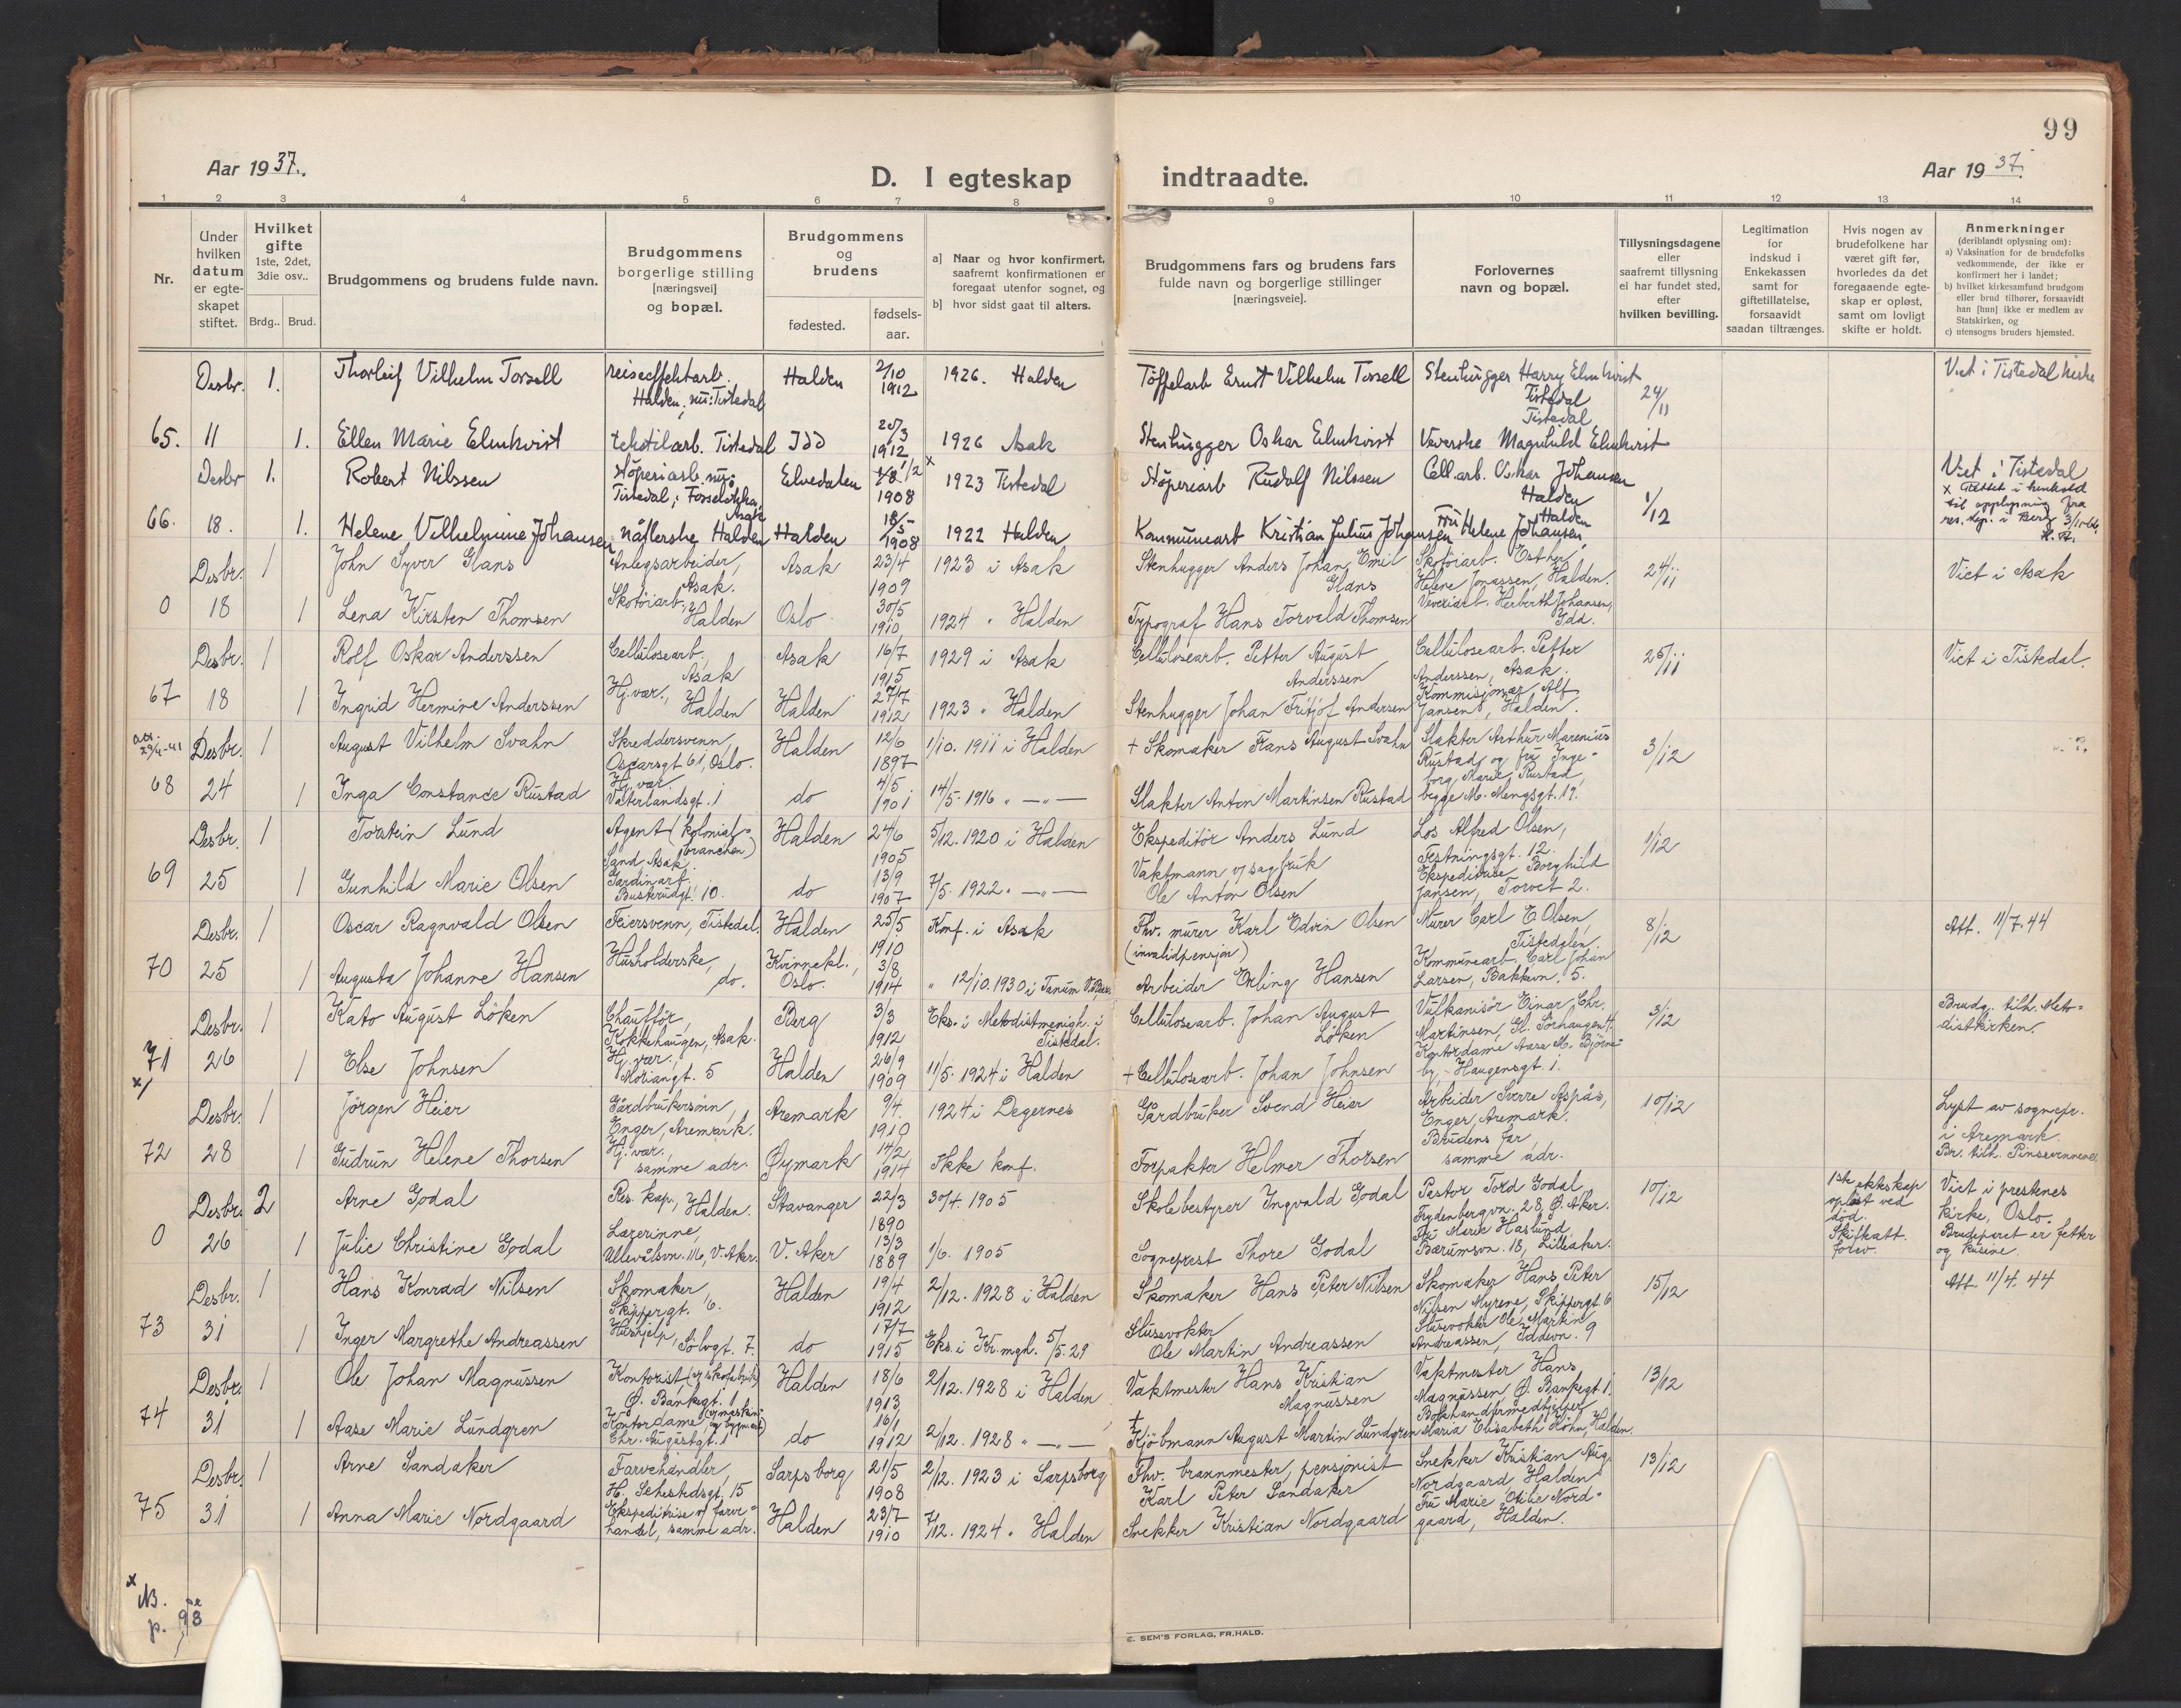 99
Aar 1937.
D. I egteskap indtraadte.
Aar 1937.
1 2 3 4 5 6 7 8 9 10 11 12 13 14
Nr.
Under hvilken datum er egteskapet stiftet.
Hvilket gifte 1ste, 2det, 3die osv..
Brdg.. Brud.
Brudgommens og brudens fulde navn.
Brudgommens borgerlige stilling [næringsvei] og bopæl.
Brudgommens og brudens
fødested. fødselsaar.
a] Naar og hvor konfirmert, saafremt konfirmationen er foregaat utenfor sognet, og
b] hvor sidst gaat til alters.
Brudgommens fars og brudens fars fulde navn og borgerlige stillinger [næringsveie].
Forlovernes navn og bopæl.
Tillysningsdagene eller saafremt tillysning ei har fundet sted, efter hvilken bevilling.
Legitimation for indskud i Enkekassen samt for giftetillatelse, forsaavidt saadan tiltrænges.
Hvis nogen av brudefolkene har været gift før, hvorledes da det foregaaende egteskap er opløst, samt om lovligt skifte er holdt.
Anmerkninger (deriblandt oplysning om):
a) Vaksination for de brudefolks vedkommende, der ikke er konfirmert her i landet;
b) hvilket kirkesamfund brudgom eller brud tilhører, forsaavidt han [hun] ikke er medlem av Statskirken, og
c) utensogns bruders hjemsted.
Desbr. 1. Thorleif Vilhelm Torsell reiseeffektarb. Halden; nu: Tistedal Halden 2/10 1912 1926. Halden Töffelarb Ernst Vilhelm Torsell Stenhugger Harry Elmkvist Tistedal 24/11 Viet i Tistedal kirke
65. 11 1. Ellen Marie Elmkvist tekstilarb. Tistedal Idd 25/3 1912 1926 Asak Stenhugger Oskar Elmkvist Veverske Magnhild Elmkvist Tistedal
Desbr 1. Robert Nilssen Støperiarb. nu: Tistedal; Fosseløkka, Asak Elvedalen 1908 1923 Tistedal Støperiarb Rudolf Nilssen Cell.arb. Oskar Johansen Halden 1/12 Viet i Tistedal
x Rettet i henhold til opplysning fra res. kap. i Berg
66. 18. 1. Helene Vilhelmine Johansen nåtlerske Halden Halden 18/5 1908 1922 Halden Kommunearb Kristian Julius Johansen Fru Helene Johansen, Halden
Desbr. 1 John Syver Glans Anlegsarbeider, Asak. Asak 23/4 1909 1923 i Asak Stenhugger Anders Johan Emil Glans Skotöiarb. Esther Helene Jonassen, Halden. 24/11 Viet i Asak
0 18 1 Lena Kirsten Thomsen Skotöiarb., Halden Oslo 30/5 1910 1924 " Halden Typograf Hans Torvald Thomsen Veveriarb. Herberth Johansen, Idd.
Desbr. 1 Rolf Oskar Anderssen Cellulosearb., Asak Asak 16/7 1915 1929 i Asak Cellulosearb. Petter August Anderssen Cellulosearb. Petter Anderssen, Asak. 25/11 Viet i Tistedal.
67 18 1 Ingrid Hermine Anderssen Hj.vær., Halden Halden 27/7 1912 1923 " Halden Stenhugger Johan Fritjof Andersen Kommisjonær Alf Jansen, Halden.
29/4-41 Desbr. 1 August Vilhelm Svahn Skreddersvenn, Oscarsgt 61, Oslo. Halden 12/6 1897 1/10. 1911 i Halden + Skomaker Frans August Svahn Slakter Arthur Marenius Rustad, og fru Ingeborg Marie Rustad, begge M. Mengsgt. 19. 3/12
68 24 1 Inga Constance Rustad Hj.vær. Vaterlandsgt. 1 do 4/5 1901 14/5. 1916 " —"— Slakter Anton Martinsen Rustad
Desbr. 1 Torstein Lund Agent (kolonialbranchen) Sand, Asak. Halden 24/6 1905 5/12. 1920 i Halden Ekspeditör Anders Lund Los Alfred Olsen, Festningsgt. 12. 1/12
69 25 1 Gunhild Marie Olsen Gardinarb. Buskerudgt. 10. do 13/9 1907 7/5. 1922 " —"— Vaktmann v/ sagbruk Ole Anton Olsen Ekspeditrise Borghild Jansen, Torvet 2.
Desbr. 1 Oscar Ragnvald Olsen Feiersvenn, Tistedal. Halden 25/5 1910 Konf. i Asak Fhv. murer Karl Edvin Olsen (invalidpensjon) Murer Carl E. Olsen, Tistedalen. 8/12 Att. 11/7.44
70 25 1 Augusta Johanne Hansen Husholderske, do. Kvinnekl., Oslo. 3/8 1914 " 12/10. 1930 i Tanum Arbeider Erling Hansen Kommunearb. Carl Johan Larsen, Bakkevn. 5.
Desbr. 1 Kato August Löken Chauffør, Kokkehaugen, Asak. Berg 3/3 1912 Eks. i Metodistmenigh. i Tistedal. Cellulosearb. Johan August Löken Vulkanisör Einar Chr. Martinsen, Gl. Sørhaugen 4. 3/12 Brudg. tilh. Metodistkirken.
71 x/ 26 1 Else Johnsen Hj.vær., Moriangt. 5 Halden 26/9 1909 11/5. 1924 i Halden + Cellulosearb. Johan Johnsen Kontordame Aase M. Björneby, Haugensgt. 1.
Desbr. 1 Jörgen Heier Gårdbrukersönn, Enger, Aremark. Aremark 9/4. 1910 1924 i Degernes Gårdbruker Svend Heier Arbeider Sverre Aspås, Enger, Aremark. 10/12 Lyst av sognepr. i Aremark.
72 28 1 Gudrun Helene Thorsen Hj.vær., samme adr. Øymark 14/2 1914 Ikke konf. Forpakter Helmer Thorsen Brudens far, samme adr. Br. tilh. Pinsevennene.
Desbr. 2 Arne Godal Res. kap., Halden. Stavanger 22/3 1890 30/4. 1905 Skolebestyrer Ingvald Godal Pastor Tord Godal, Frydenbergvn. 28, Ø. Aker. 10/12 1ste ektskap opløst ved död. Skifteatt. forev. Viet i prestenes kirke, Oslo. Brudeparet er fetter og kusine.
0 26 1 Julie Christine Godal Lærerinne, Ullevålsvn. 116, V. Aker. V. Aker 13/3 1889 1/6. 1905 Sogneprest Thore Godal Fru Marie Haslund, Bærumsvn. 18, Lilleaker.
Desbr. 1 Hans Konrad Nilsen Skomaker, Skippergt. 6. Halden 19/4 1912 2/12. 1928 i Halden Skomaker Hans Peter Nilsen Skomaker Hans Peter Nilsen Myrene, Skippergt 6 15/12 Att. 11/4. 44
73 31 1 Inger Margrethe Andreassen Hushjelp, Sölvgt. 7. do 17/7 1915 Eks. i Kr.mgh. 5/5.29 Slusevokter Ole Martin Andreassen Slusevokter Ole Martin Andreassen, Iddevn. 9
Desbr. 1 Ole Johan Magnussen Kontorist (v/ skofabrikk) Ø. Bankegt. 1 Halden 18/6 1913 2/12. 1928 i Halden Vaktmester Hans Kristian Magnussen Vaktmester Hans Magnussen, Ø. Bankegt 1. 13/12
74 31 1 Aase Marie Lundgren Kontordame Chr. Augustgt. 1 do 16/1 1912 2/12. 1928 " —"— + Kjöbmann August Martin Lundgren Bokhandlermedhjelper Maria Elisabeth Höhn, Halden.
Desbr. 1 Arne Sandaker Farvehandler, H. Sehestedsgt. 15 Sarpsborg 21/5 1908 2/12. 1923 i Sarpsborg Fhv. brannmester, pensjonist Karl Peter Sandaker Snekker Kristian Aug. Nordgaard, Halden 13/12
75 31 1 Anna Marie Nordgaard Ekspeditrise v/ farvehandel, samme adr. Halden 23/7 1910 7/12. 1924 " Halden Snekker Kristian Nordgaard Fru Marie Otilie Nordgaard, Halden.
x NB. p. 98
E. SEM'S FORLAG, FR.HALD.